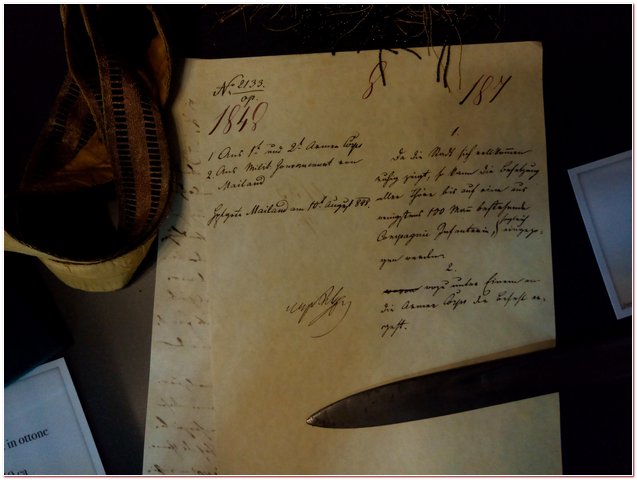 No 2133.
op.
1848
8
187
1 Ans 1te und 2te Armee Corps
2. Ans Milit Gouvernement von
Mailand
Hptqu Mailand am 10t August 848.
1.
Da die Stadt sich vollkommen
ruhig zeigt, so kann die Besatzung
aller Thore bis auf eine aus
wenigstens 100 Man bestehende
Compagnie Infanterie, sogleich eingezo-
gen werden.
2.
wozu unter Einem an
die Armee Corps der Befehl er-
geht.
in ottone